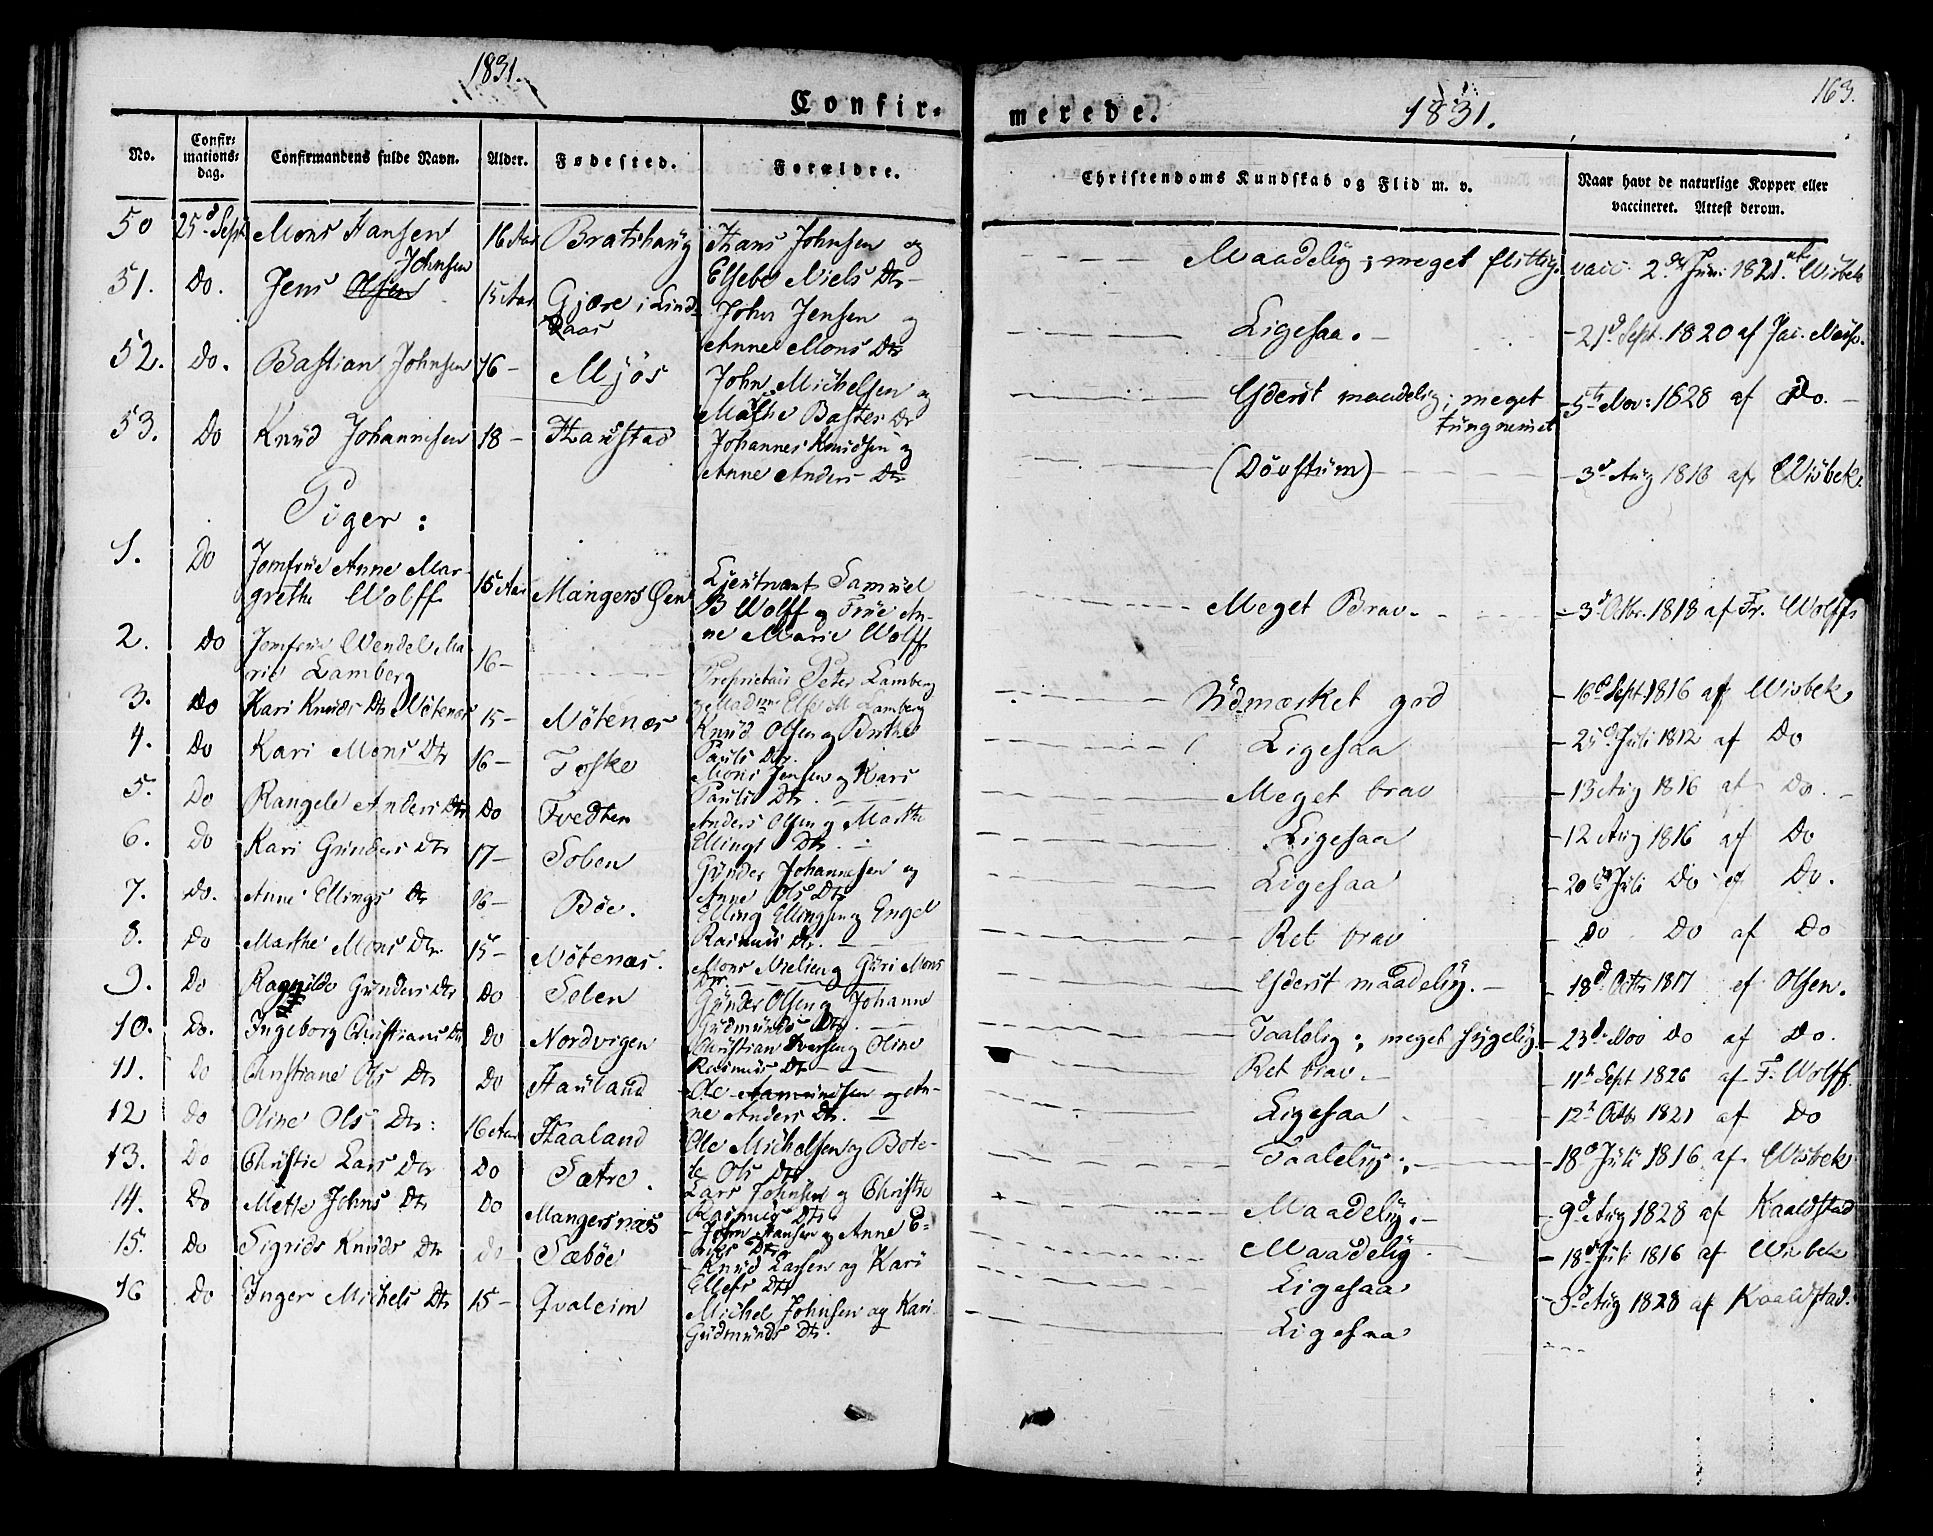 1831.
Confir-
No.
Confir-
mations-
dag.
Confirmandens fulde Navn.
Alder.
Fødested.
Forældre.
50 25d Sept Mons Hansen 16 Aar Bratshaug Hans Johnsen og
Elsebe Niels Dtr
51. Do. Jens Olsen Johnsen 15 Aar Gjære i Lind-
aas John Jensen og
Anne Mons Dtr
52. Do. Bastian Johnsen 16 - Mjøs John Michelsen og
Marthe Basties Dr
53. Do Knud Johannesen 18 - Haustad Johannes Knudsen og
Anne Anders Dtr
Piger:
1. Do Jomfrue Anne Mar-
grethe Wolff 15 Aar Mangers Øen Lieutnant Samuel
B Wolff og Frue An-
ne Marie Wolff
2. Do Jomfrue Wendel Ma-
rie Lamberg 16 - Proprietair Peter Lamberg
og Madme Else M Lamberg
3. Do Kari Knuds Dtr Nötenæs 15 - Nötenæs Knud Olsen og Brithe
Pauls Dtr.
4. Do Kari Mons Dtr 16 - Toske Mons Jensen og Kari
Pauls Dtr.
5. Do Rangele Anders Dtr Do Tvedten Anders Olsen og Marthe
Ellings Dtr.
6. Do Kari Gunders Dtr 17 - Solen Gunder Johannesen og
Anne Ols Dtr
7. Do. Anne Ellings Dtr 16 - Böe. Elling Ellingsen og Engel
Rasmus Dtr.
8. Do Marthe Mons Dtr 15 - Nötenæs. Mons Nielsen og Guri Mons
Dtr.
9. Do Ragnilde Gunders Dtr Do Solen Gunder Olsen og Johanne
Gudmunds Dtr.
10. Do. Ingeborg Christians Dtr Do Nordvigen Christian Iversen og Oline
Rasmus Dtr
11. Do Christiane Ols Dtr Do Hauland Ole Aamundsen og An-
ne Anders Dtr.
12 Do Oline Ols Dtr: 16 Aar Haaland Ole Michelsen og Bote-
le Ols Dtr
13. Do Christie Lars Dtr Do Sætre. Lars Johnsen og Christie
Rasmus Dtr
14. Do Mette Johns Dtr Do Mangersnæs John Hansen og Anne E-
riks Dtr
15. Do Sigrids Knuds Dtr do Sæböe Knud Larsen og Kari
Ellefs Dtr
16 Do Inger Michels Dtr 15 - Qvaleim Michel Johnsen og Kari
Gudmunds Dtr.
163.
merede. 1831.
Christendoms Kundskab og Flid m. v.
Naar havt de naturlige Kopper eller
vaccineret. Attest derom.
Maadelig; meget flittig vacc. 2den Juni 1821. af Wisbek
Ligesaa. - 21d Sept. 1820 af Jac.
Yderst maadelig; meget
tungnemet - 5te Nov: 1828 af Do.
(Dövstum) - 3d Aug 1816 af Wisbek.
Meget Brav. - 3d Octbr. 1818 af Fr. Wolff
Udmærket god - 16d Sept. 1816 af Wisbek
Ligesaa - 25d Juli 1812 af Do
Meget brav - 13 Aug 1816 af Do.
Ligesaa - 12 Aug 1816 af Do
Ligesaa - 20de Juli Do af Do.
Ret brav - Do Do af Do
Yderst maadelig. - 18d Octbr 1817 af Olsen.
Taalelig; meget sygelig - 23d Nov Do af Do.
Ret brav. - 11te Sept 1826 af F. Wolff.
Ligesaa - 12te Octb 1821 af Do
Taalelig; - 18d Juli 1816 af Wisbek
Maadelig. - 9d Aug 1828 af Kaaldstad
Maadelig. - 18d Juli 1816 af Wisbek
Ligesaa - 5d Aug 1828 af Kaaldstad.
Ligesaa